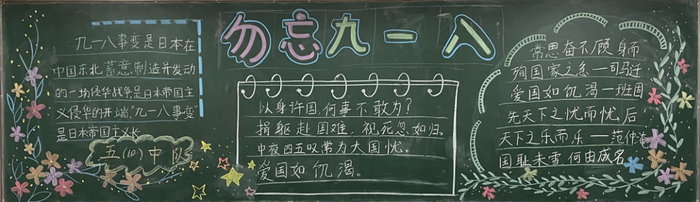 勿忘九一八
九一八事变是日本在
中国东北蓄意制造并发动
的一场侵华战争是日本帝国主
义侵华的开端"九一八事变"
是日本帝国主义长
五(10)中队
以身许国,何事不敢为?
捐躯赴国难,视死忽如归。
中夜四五叹常为大国忧。
爱国如饥渴。
常思奋不顾身而
殉国家之急—司马迁
爱国如饥渴—班固
先天下之忧而忧后
天下之乐而乐——范仲淹
国耻未雪,何由成名